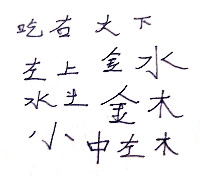 吃右大下
左上金水
水土金木
小中左木